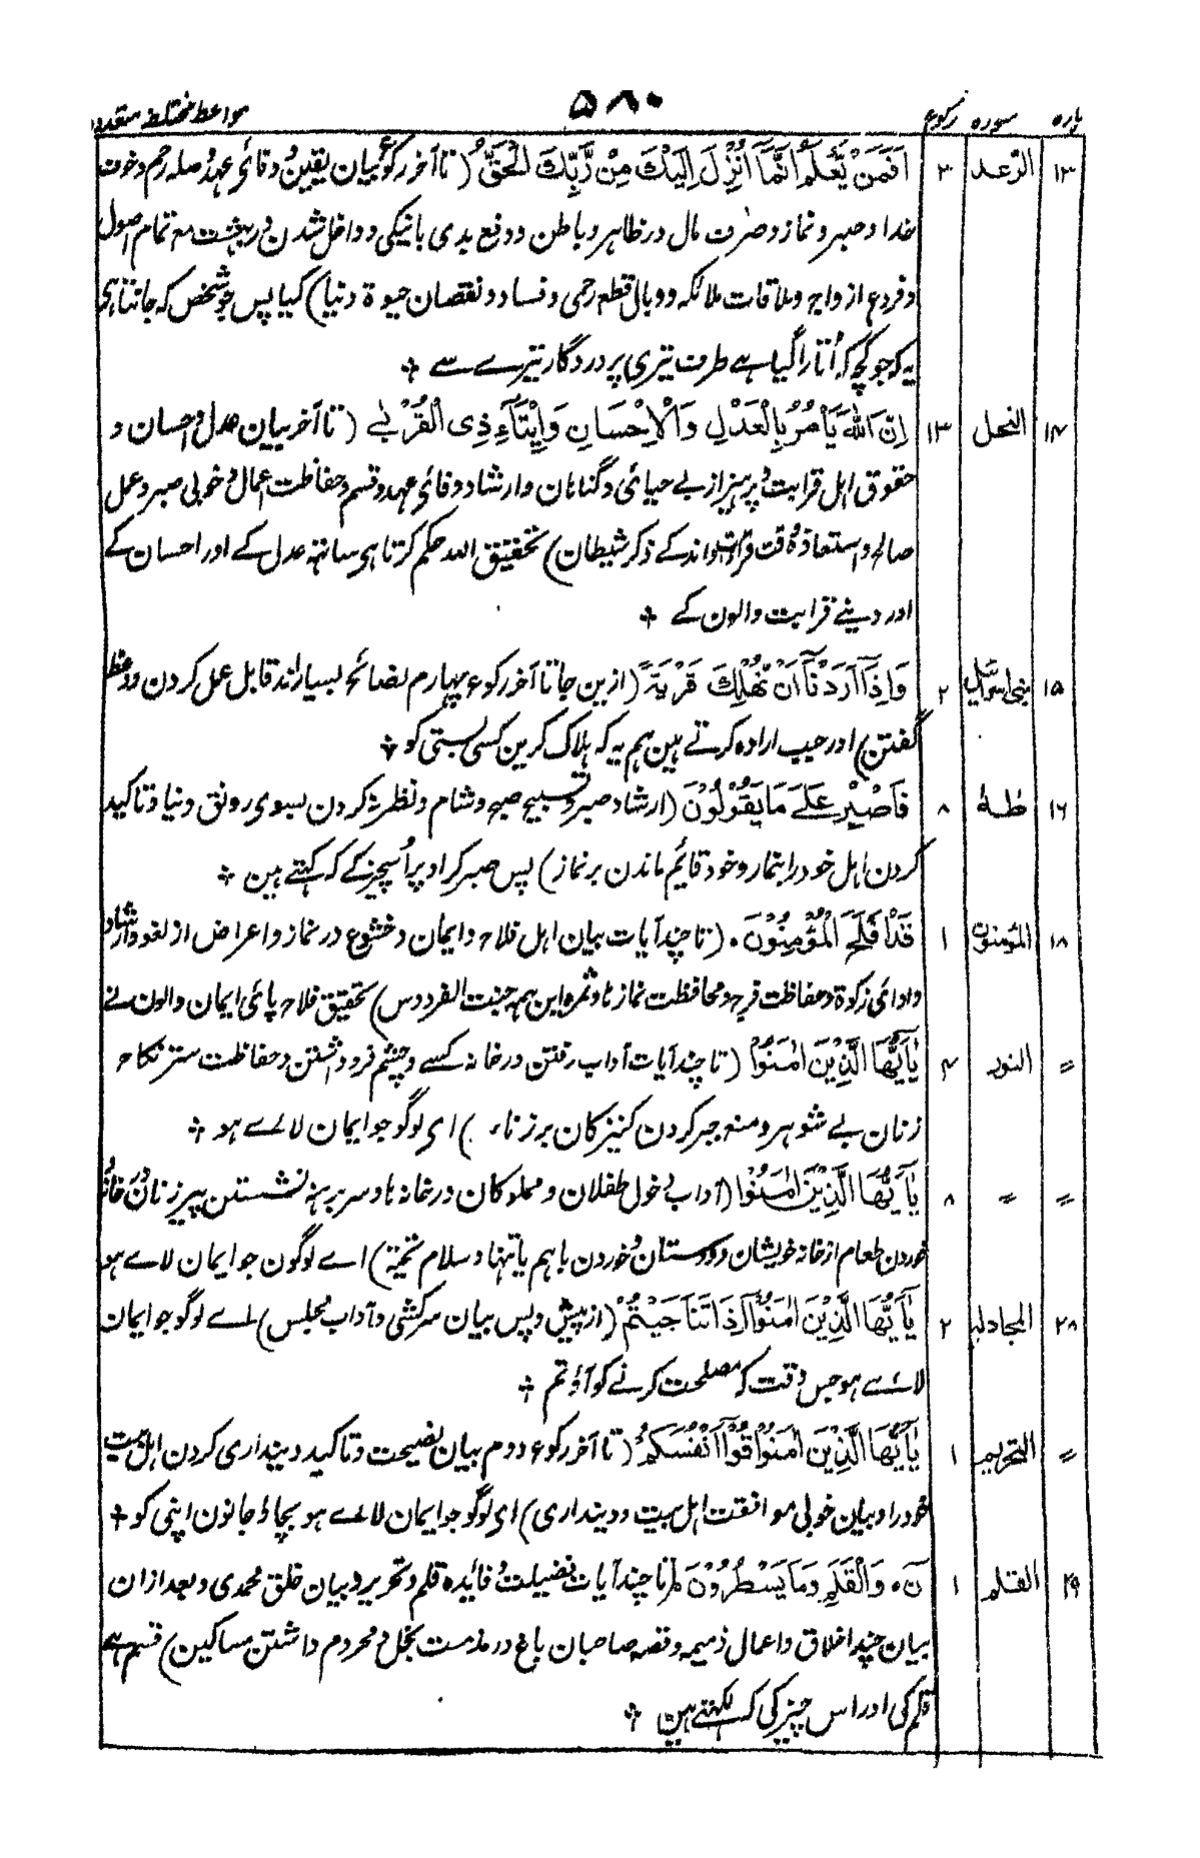 ۵۸۰
پاره سوره رکوع مواعظ مختلط متعدد
۱۳ الرعد ۳ اَفَمَنْ يَّعْلَمُ اَنَّمَآ اُنْزِلَ اِلَيْكَ مِنْ رَّبِّكَ الْحَقُّ (تا آخر رکوع بیان یقین و وفائی عہد و صلہ رحم و خوف
خدا و صبر و نماز و صرف مال در ظاهر و باطن و دفع بدی بانیکی و داخل شدن در بهشت مع تمام اصول
و فروع ازواج و ملاقات ملائکه و وبال قطع رحمی و فساد و نقصان حیوة دنیا) کیا پس جو شخص کہ جانتا ہی
یہ کہ جو کچھ کہ اُتارا گیا ہے طرف تیری پروردگار تیرے سے ۔
۱۴ النحل ۱۳ اِنَّ اللهَ يَاْمُرُ بِالْعَدْلِ وَالْاِحْسَانِ وَاِيْتَآءِ ذِى الْقُرْبٰى (تا آخر بیان عدل و احسان و
حقوق اہل قرابت و پرہیز از بے حیائی و گناہان و ارشاد وفائی عہد و قسم و حفاظت اعمال و خوبی صبر و عمل
صالح و استعاذہ وقت قرآن خواندن کے ذکر شیطان) تحقیق اللہ حکم کرتا ہی ساتھ عدل کے اور احسان کے
اور دینے قرابت والون کے ۔
۱۵ بنی اسرائیل ۲ وَاِذَآ اَرَدْنَآ اَنْ نُّهْلِكَ قَرْيَةً (ازین جا تا آخر رکوع چہارم نصائح بسیار اند قابل عمل کردن و وعظ
گفتن) اور جب ارادہ کرتے ہین ہم یہ کہ ہلاک کرین کسی بستی کو ۔
۱۶ طٰهٰ ۸ فَاصْبِرْ عَلٰى مَا يَقُوْلُوْنَ (ارشاد صبر و تسبیح صبح و شام و نظر نہ کردن بسوی رونق دنیا و تاکید
کردن اہل خود را بنماز و خود قائیم ماندن بر نماز) پس صبر کر اوپر اُسچیز کے کہ کہتے ہین ۔
۱۸ المؤمنون ۱ قَدْ اَفْلَحَ الْمُؤْمِنُوْنَ ۰ (تا چند آیات بیان اہل فلاح و ایمان و خشوع در نماز و اعراض از لغو و ارشاد
و ادائی زکوة و حفاظت فرج و محافظت نمازہا و ثمرہ این ہمہ جنت الفردوس) تحقیق فلاح پائی ایمان والون نے
= النور ۴ يٰٓاَيُّهَا الَّذِيْنَ اٰمَنُوْا (تا چند آیات آداب رفتن در خانہ کسے و چشم فرو داشتن و حفاظت ستر نکاح
زنان بے شوہر و منع جبر کردن کنیزکان بر زناء) ای لوگو جو ایمان لائے ہو ۔
= = ۸ يٰٓاَيُّهَا الَّذِيْنَ اٰمَنُوْا (آداب دخول طفلان و مملوکان در خانہ ہا و سر برہنہ نشستن پیر زنان در خانہ
خوردن طعام از خانہ خویشان و دوستان و خوردن باہم یا تنہا و سلام تحیة) اے لوگون جو ایمان لائے ہو
۲۸ المجادلہ ۲ يٰٓاَيُّهَا الَّذِيْنَ اٰمَنُوْٓا اِذَا تَنَاجَيْتُمْ (از پیش و پس بیان سرگشی و آداب مجلس) اے لوگو جو ایمان
لائے ہو جس وقت کہ مصلحت کرنے کو آؤ تم ۔
= التحریم ۱ يٰٓاَيُّهَا الَّذِيْنَ اٰمَنُوْا قُوْٓا اَنْفُسَكُمْ (تا آخر رکوع دوم بیان نصیحت و تاکید دینداری کردن اہل بیت
خود را و بیان خوبی موافقت اہل بیت و دینداری) ای لوگو جو ایمان لائے ہو بچاؤ جانون اپنی کو ۔
۲۹ القلم ۱ نٓ ۰ وَالْقَلَمِ وَمَا يَسْطُرُوْنَ (تا چند آیات فضیلت و فائدہ قلم و تحریر و بیان خلق محمدی و بعد ازان
بیان چند اخلاق و اعمال ذمیمہ و قصہ صاحبان باغ در مذمت بخل و محروم داشتن مساکین) قسم ہے
قلم کی اور اس چیز کی کہ لکھتے ہین ۔